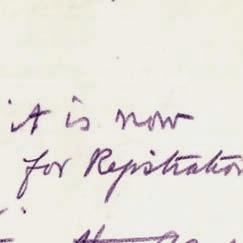 it is now
for Registration